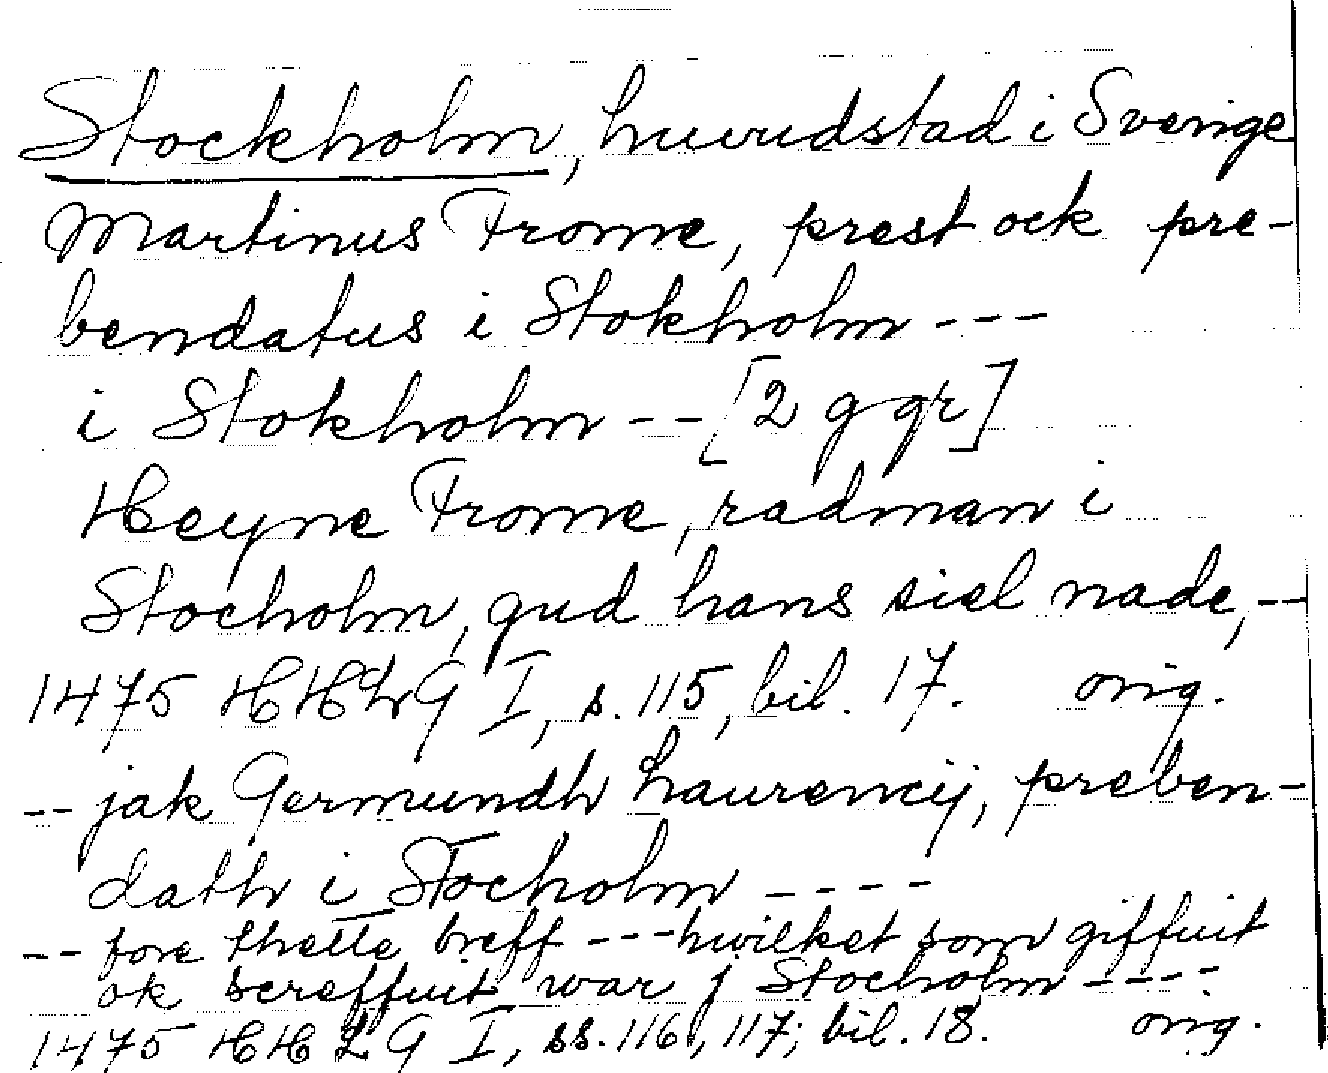 Stockholm, huvudstad i Sverige
Martinus Frome, prest ock pre-
bendatus i Stokholm ---
i Stokholm -- [2 ggr]
Heyne Frome, radman i
Stocholm, gud hans siel nade, --
1475 HHLG I, s. 115, bil. 17. orig.
-- jak Germundh Laurencij, preben-
dath i Stocholm ----
-- fore thette breff --- hwilket som giffuit
ok screffuit war j Stocholm ----
1475 HHLG I, ss. 116, 117; bil. 18. orig.